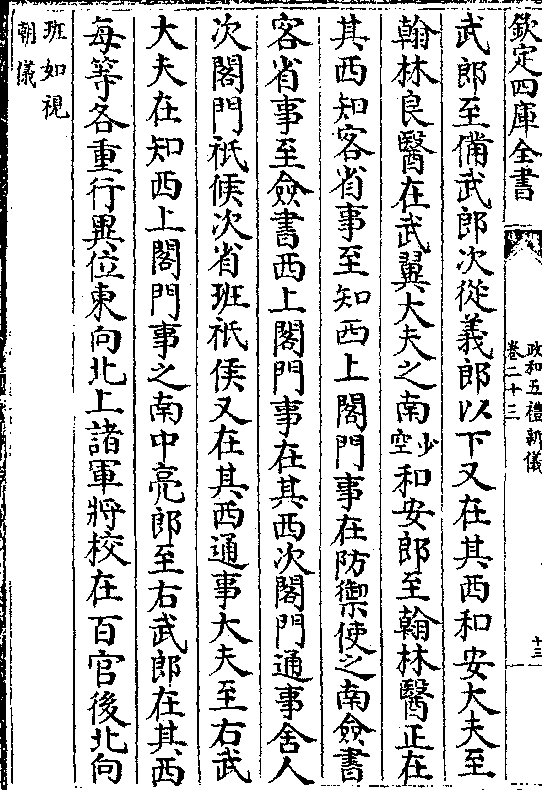 欽定四庫全書
政和五禮新儀
卷二十三
十三
武郎至備武郎次從義郎以下又在其西和安大夫至
翰林良醫在武翼大夫之南少空和安郎至翰林醫正在
其西知客省事至知西上閤門事在防禦使之南僉書
客省事至僉書西上閤門事在其西次閤門通事舍人
次閤門祇候次省班祇候又在其西通事大夫至右武
大夫在知西上閤門事之南中亮郎至右武郎在其西
每等各重行異位東向北上諸軍將校在百官後北向
班如視
朝儀